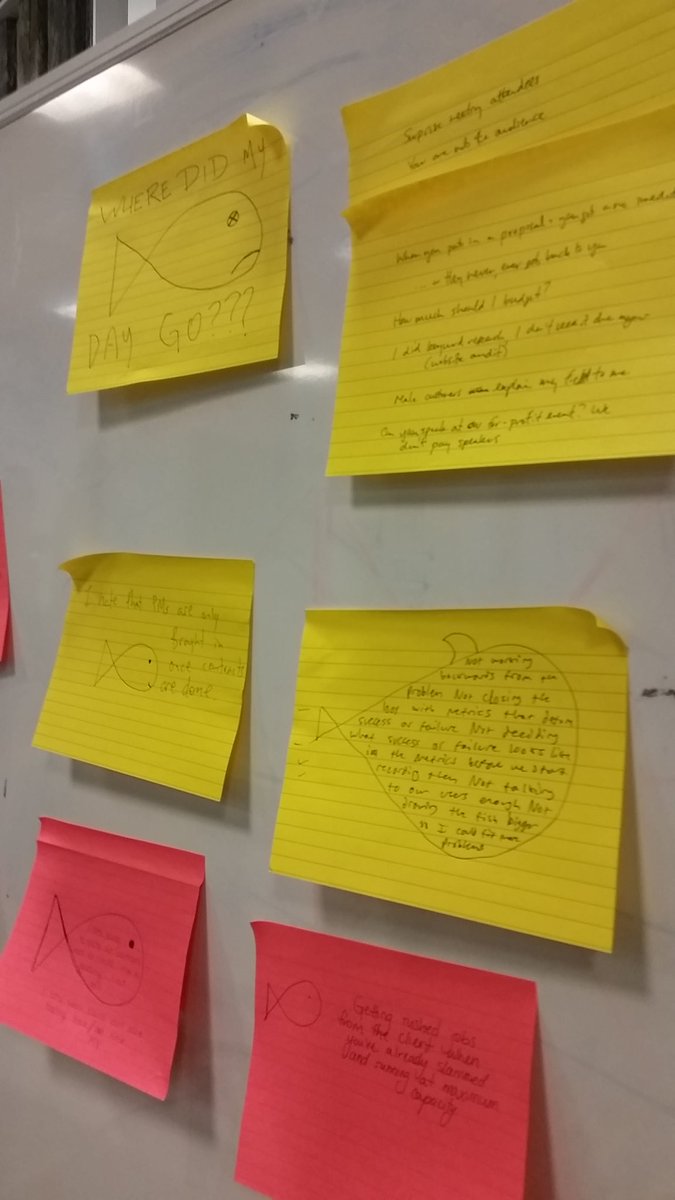 WHERE DID MY
DAY GO???
Surprise meeting attendees
You are not the audience
When you put in a proposal + you get a new
... or they never, ever get back to you
How much should I budget?
I did keyword research, I don't need it done again
(website audit)
Male customers explain my to me
Can you speak at our for-profit event? We
don't pay speakers
I hate that PMs are only
brought in
once contracts
are done
Not working
backwards from the
problem Not closing the
loop with metrics that
success or failure Not deciding
what success or failure looks like
in the metrics before we start
recording them Not talking
to our users enough Not
drawing the fish bigger
so I could fit more
problems
Getting rushed jobs
from the client when
you're already slammed
and running at maximum
capacity